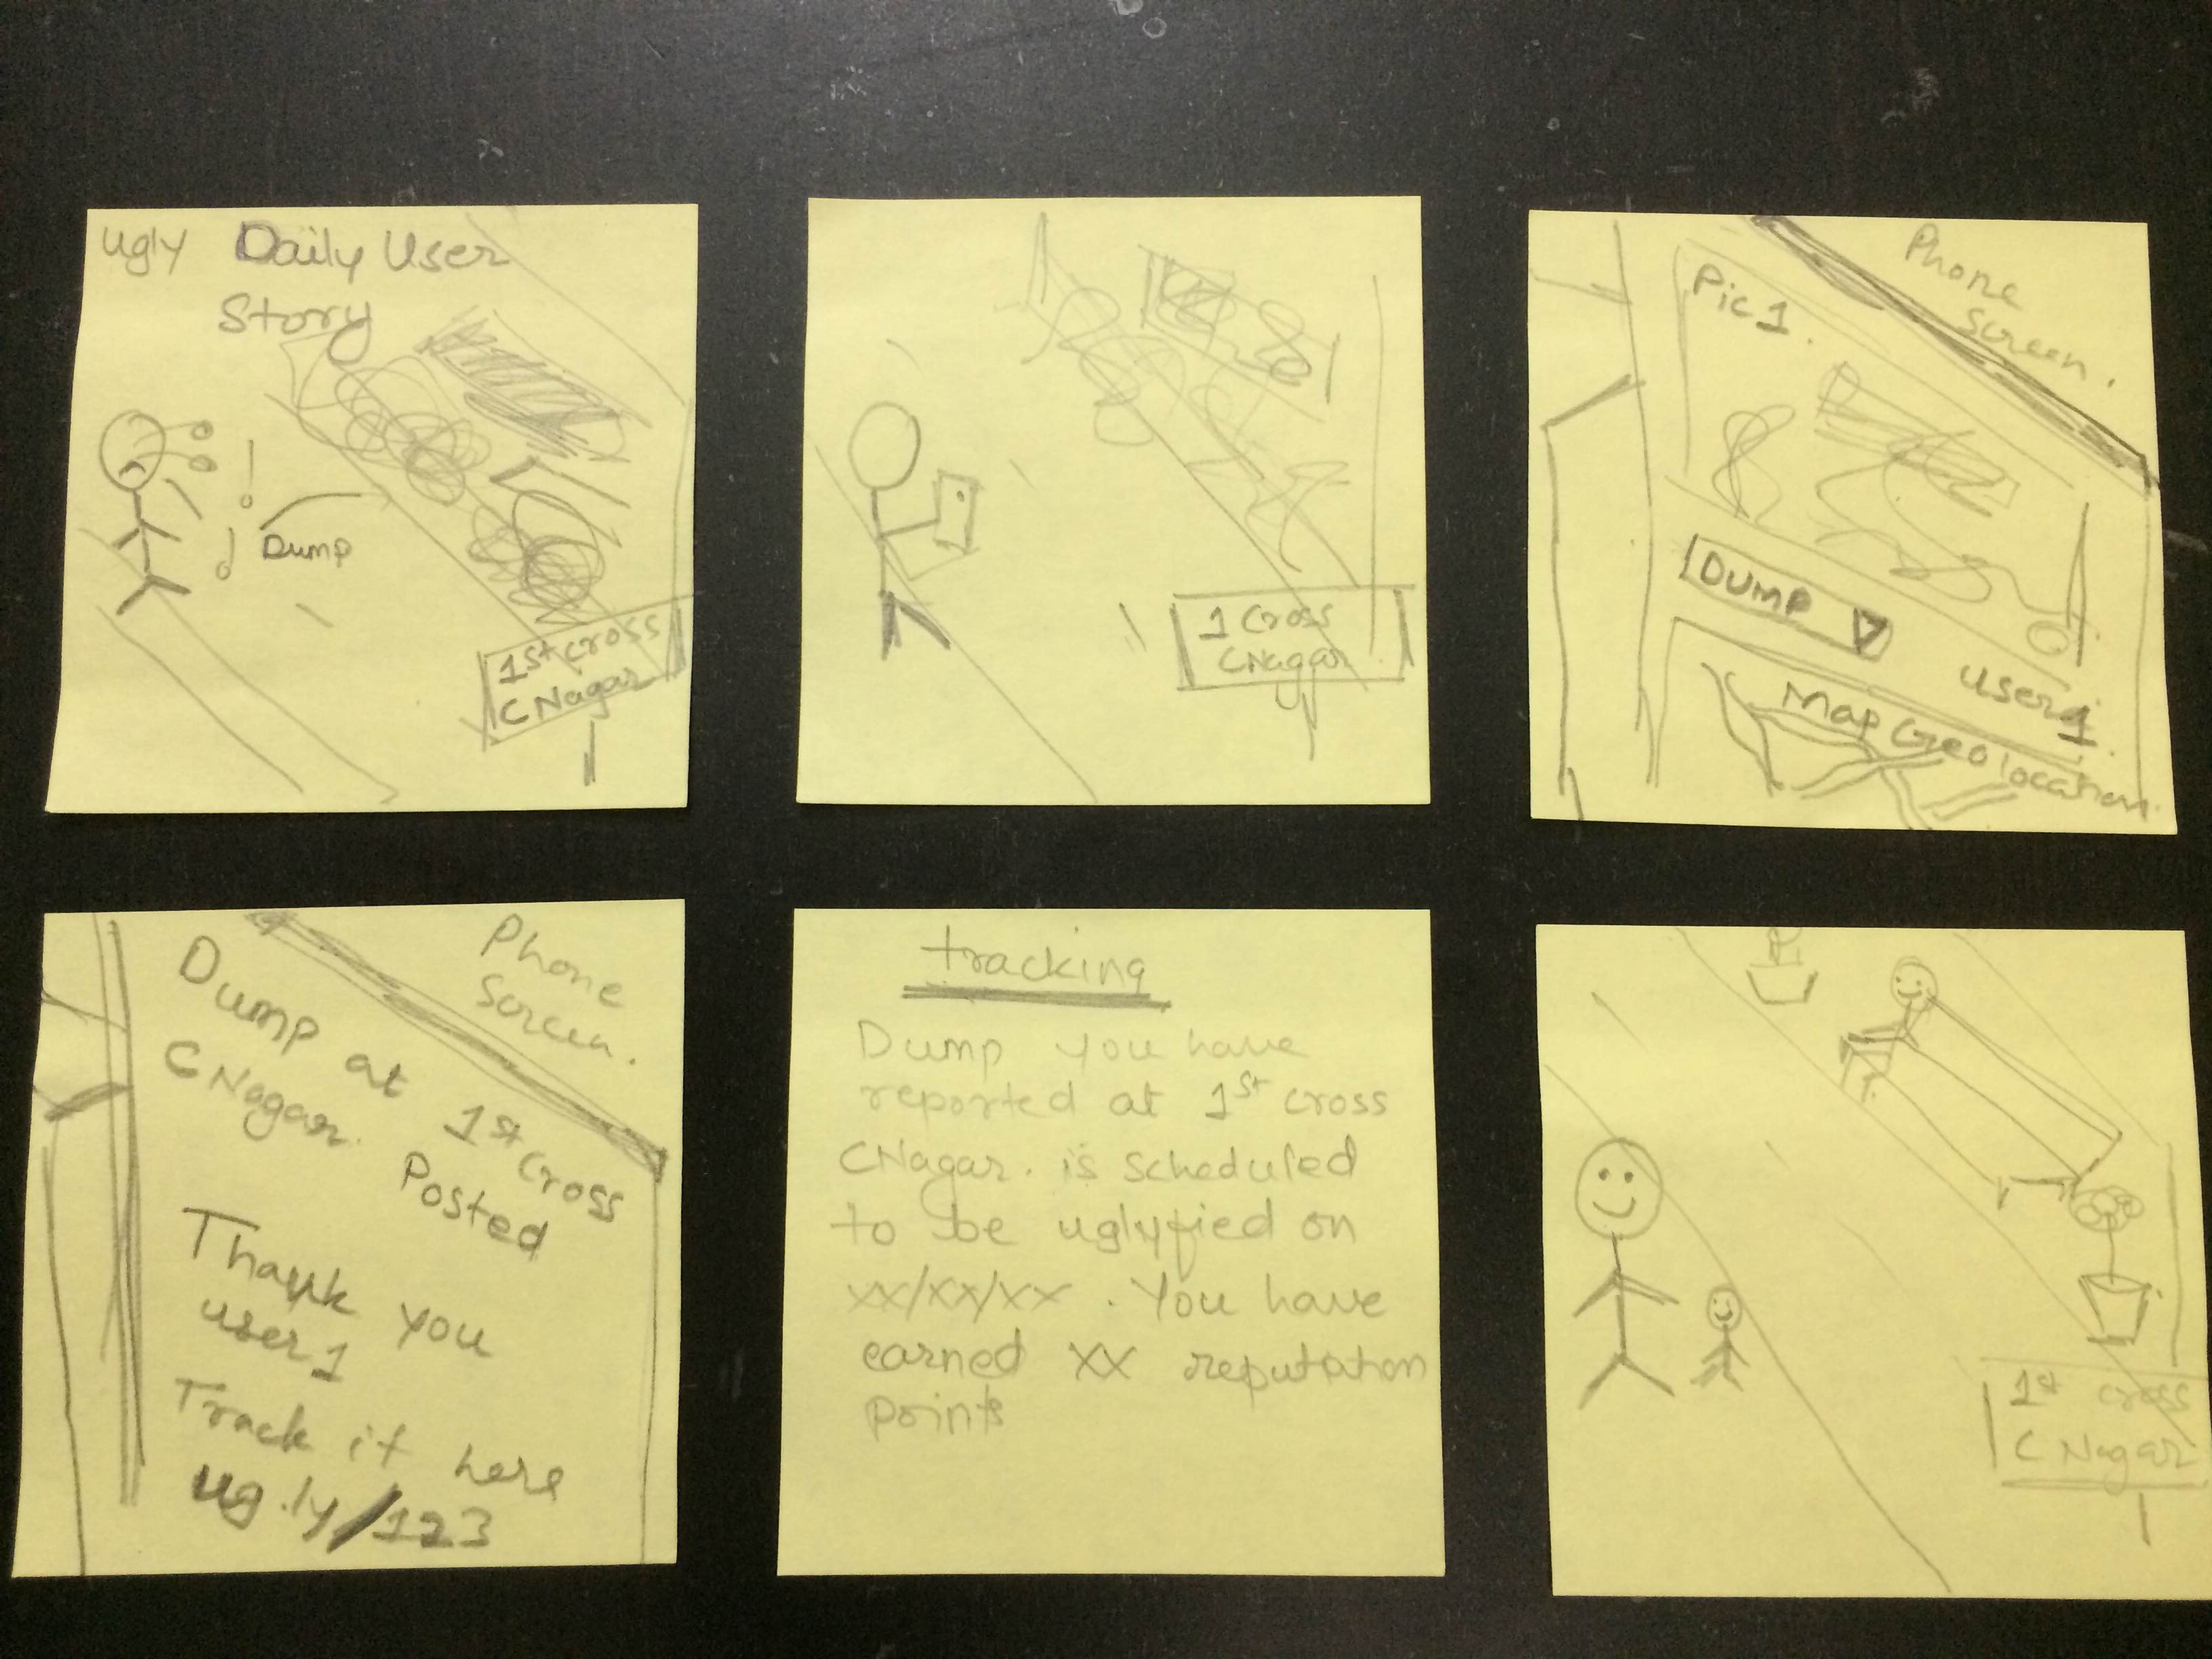 ugly Daily User
Story
Dump
1st cross
C Nagar
1 Cross
CNagar
Phone
Screen.
Pic 1.
DUMP
user 1.
Map Geo location
Phone
Screen.
Dump at 1st cross
C Nagar. Posted
Thank you
user 1
Track it here
ug.ly/123
tracking
Dump you have
reported at 1st cross
CNagar. is scheduled
to be uglyfied on
xx/xx/xx. You have
earned xx reputation
points
1st cross
C Nagar